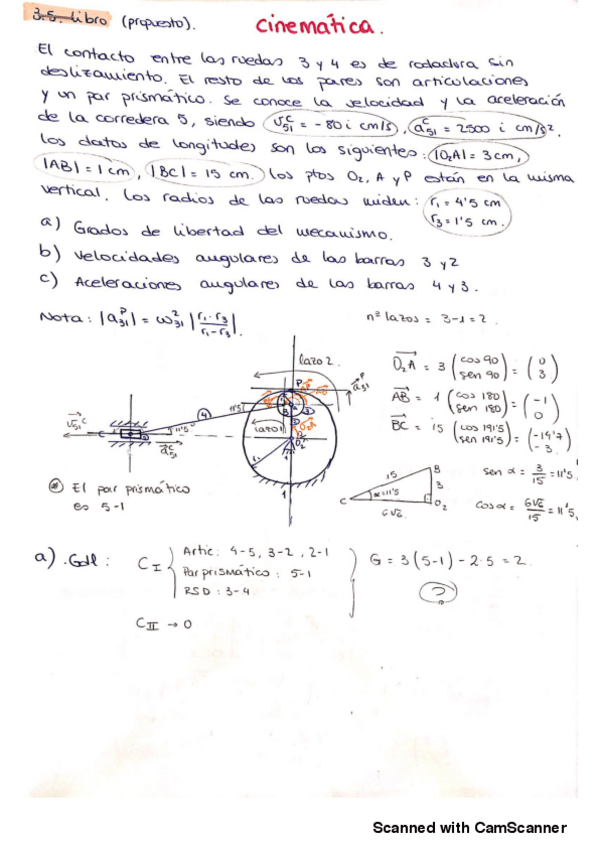 3.5. Libro (propuesto).
Cinemática.
El contacto entre las ruedas 3 y 4 es de rodadura sin
deslizamiento. El resto de los pares son articulaciones
y un par prismático. Se conoce la velocidad y la aceleración
de la corredera 5, siendo v⃗51^C = -80 i cm/s, a⃗51^C = 2500 i cm/s².
Los datos de longitudes son los siguientes: |O₂A| = 3 cm,
|AB| = 1 cm, |BC| = 15 cm. Los ptos O₂, A y P están en la misma
vertical. Los radios de las ruedas miden: r₁ = 4'5 cm
r₃ = 1'5 cm.
a) Grados de libertad del mecanismo.
b) Velocidades angulares de las barras 3 y 2
c) Aceleraciones angulares de las barras 4 y 3.
Nota: |a31^P| = ω²31 |r₁·r₃ / r₁-r₃|.
nº lazos = 3-1 = 2.
lazo 2.
P
a⃗31^P
O₂A = 3 (cos 90 sen 90) = (0 3)
AB = 1 (cos 180 sen 180) = (-1 0)
BC = 15 (cos 191'5 sen 191'5) = (-14'7 -3)
v⃗51^C
a⃗51^C
(4)
11'5°
lazo 1
1
* El par prismático
es 5-1
15
B
3
C
α=11'5
O₂
6√6
sen α = 3/15 = 11'5,
cos α = 6√6/15 = 11'5,
a). Gdl:
C_I { Artic: 4-5, 3-2, 2-1
Par prismático: 5-1
RSD: 3-4
G = 3(5-1) - 2·5 = 2.
?
C_II → 0
Scanned with CamScanner